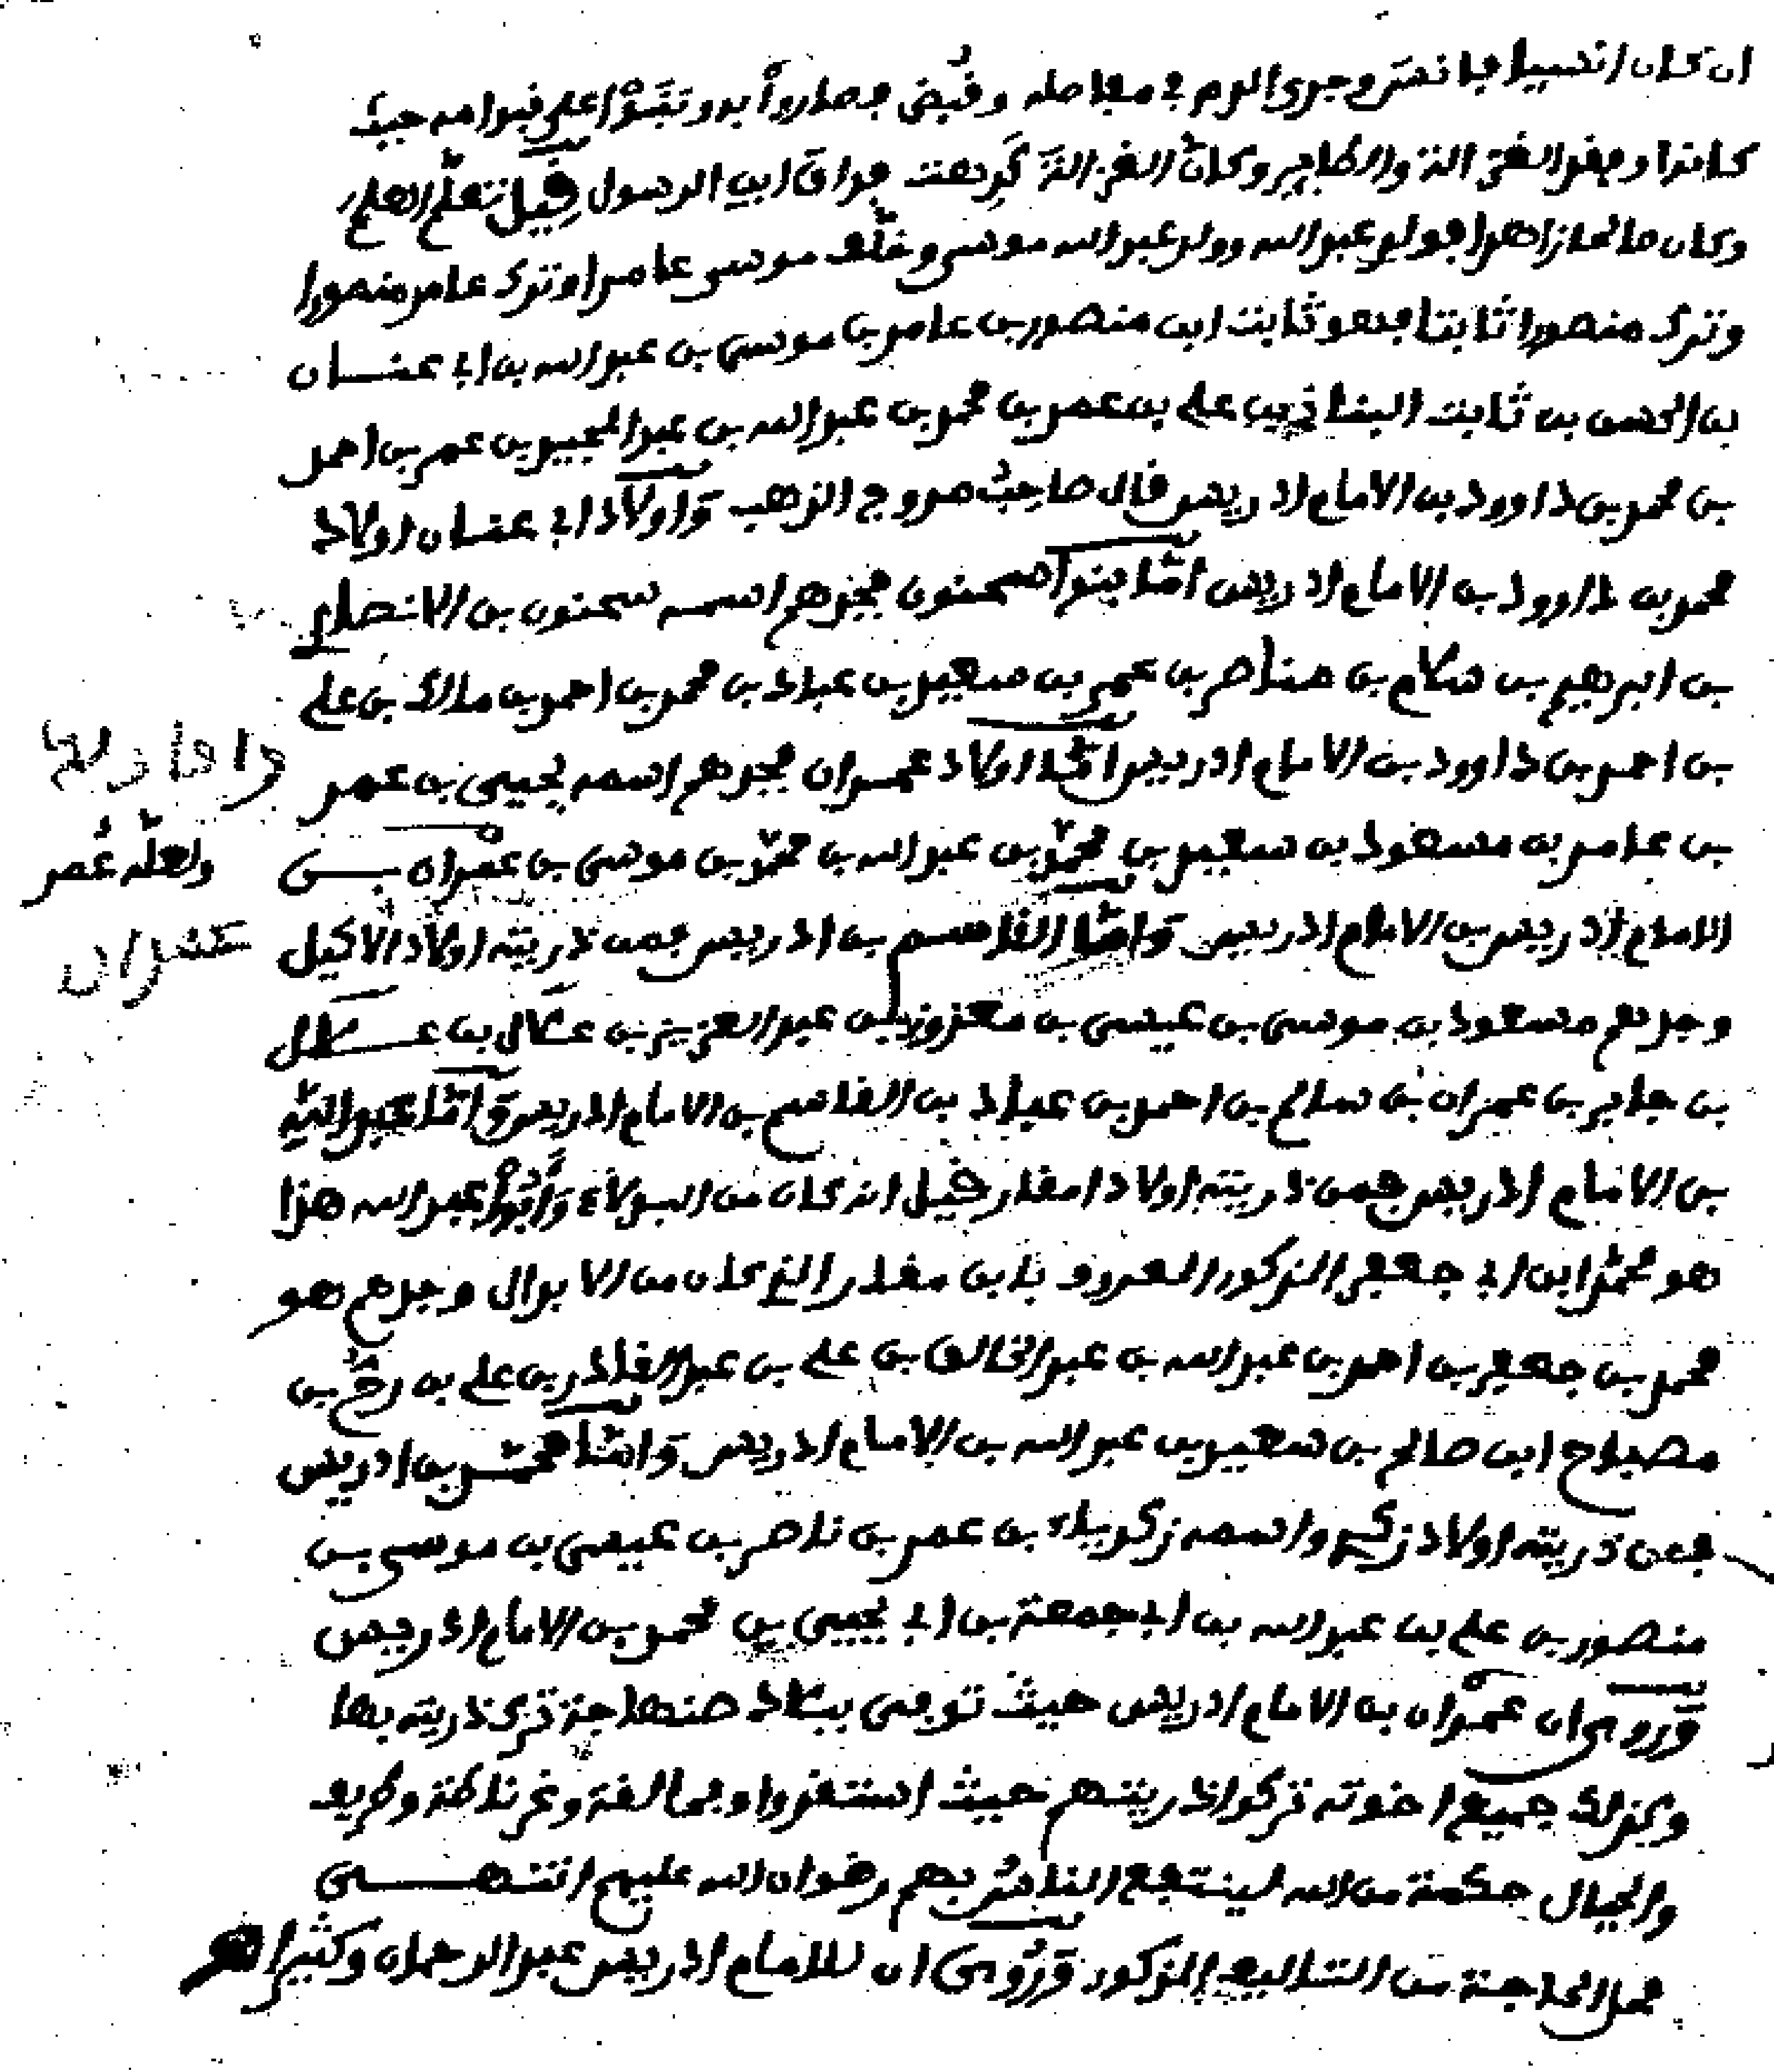 ان كان انتسبوا فانفسر وجرى الدم في مفاصله وقبض فصاروا يدوتقبوا على قبرا من حيث
كانوا وفقد الفتى الذ والطاهر وكان الذي كرهت فراق ابن الرسول قيل تعلم العلم
وكان صالحا زاهدا فولد عبد الله وولد عبد الله موسى وخلف موسى عامرا وترك عامر منصورا
وترك منصورا ثابتا فهو ثابت ابن منصور بن عامر بن موسى بن عبد الله بن ابي عنان
بن الحسن بن ثابت بن علي بن عمر بن محمد بن عبد الله بن عبد المجيد بن عمر بن احمد
بن محمد بن داوود بن الامام ادريس قال صاحب مروج الذهب واولاد ابي عنان اولاد
محمد بن داوود بن الامام ادريس اما بنوا سحنون فجدهم اسمه سحنون بن الانصاري
بن ابرهيم بن سلام بن مناصر بن عمر بن سعيد بن عباد بن محمد بن احمد بن مالك بن علي
بن احمد بن داوود بن الامام ادريس اما اولاد عمران فجدهم اسمه يحيى بن عمر
بن عامر بن مسعود بن سعيد بن محمد بن عبد الله بن محمد بن موسى بن عمران بن
ولعله عمر
عمران
الامام ادريس بن الامام ادريس واما القاسم بن ادريس فمن ذريته اولاد الاكيل
وجدهم مسعود بن موسى بن عيسى بن معزوز بن عبد العزيز بن علال بن علال
بن جابر بن عمران بن سالم بن احمد بن عباد بن القاسم بن الامام ادريس واما عبد الله
بن الامام ادريس فمن ذريته اولاد امغار قيل انه كان من البدلاء وابو عبد الله هذا
هو محمد ابن ابي جعفر المذكور المعروف بابن مغار الذي كان من الابدال وجدهم هو
محمد بن جعفر بن احمد بن عبد الله بن عبد الخالق بن علي بن عبد القادر بن علي بن رح بن
مصباح ابن صالح بن سعيد بن عبد الله بن الامام ادريس واما محمد بن ادريس
فمن ذريته اولاد زكري واسمه زكرياء بن عمر بن ناصر بن عيسى بن موسى بن
منصور بن علي بن عبد الله بن ابي جمعة بن ابي يحيى بن محمد بن الامام ادريس
وروى ان عمران بن الامام ادريس حيث توفى ببلاد صنهاجة ترك ذريته بها
وكذلك جميع اخوته تركوا ذريتهم حيث استقروا وبمالقة وغرناطة وطريف
والجبال حكمة من الله لينتفع الناس بهم رضوان الله عليهم انتهى
محل الحاجة من التاليف المذكور وروى ان للامام ادريس عبد الرحمان وكثيرا هو